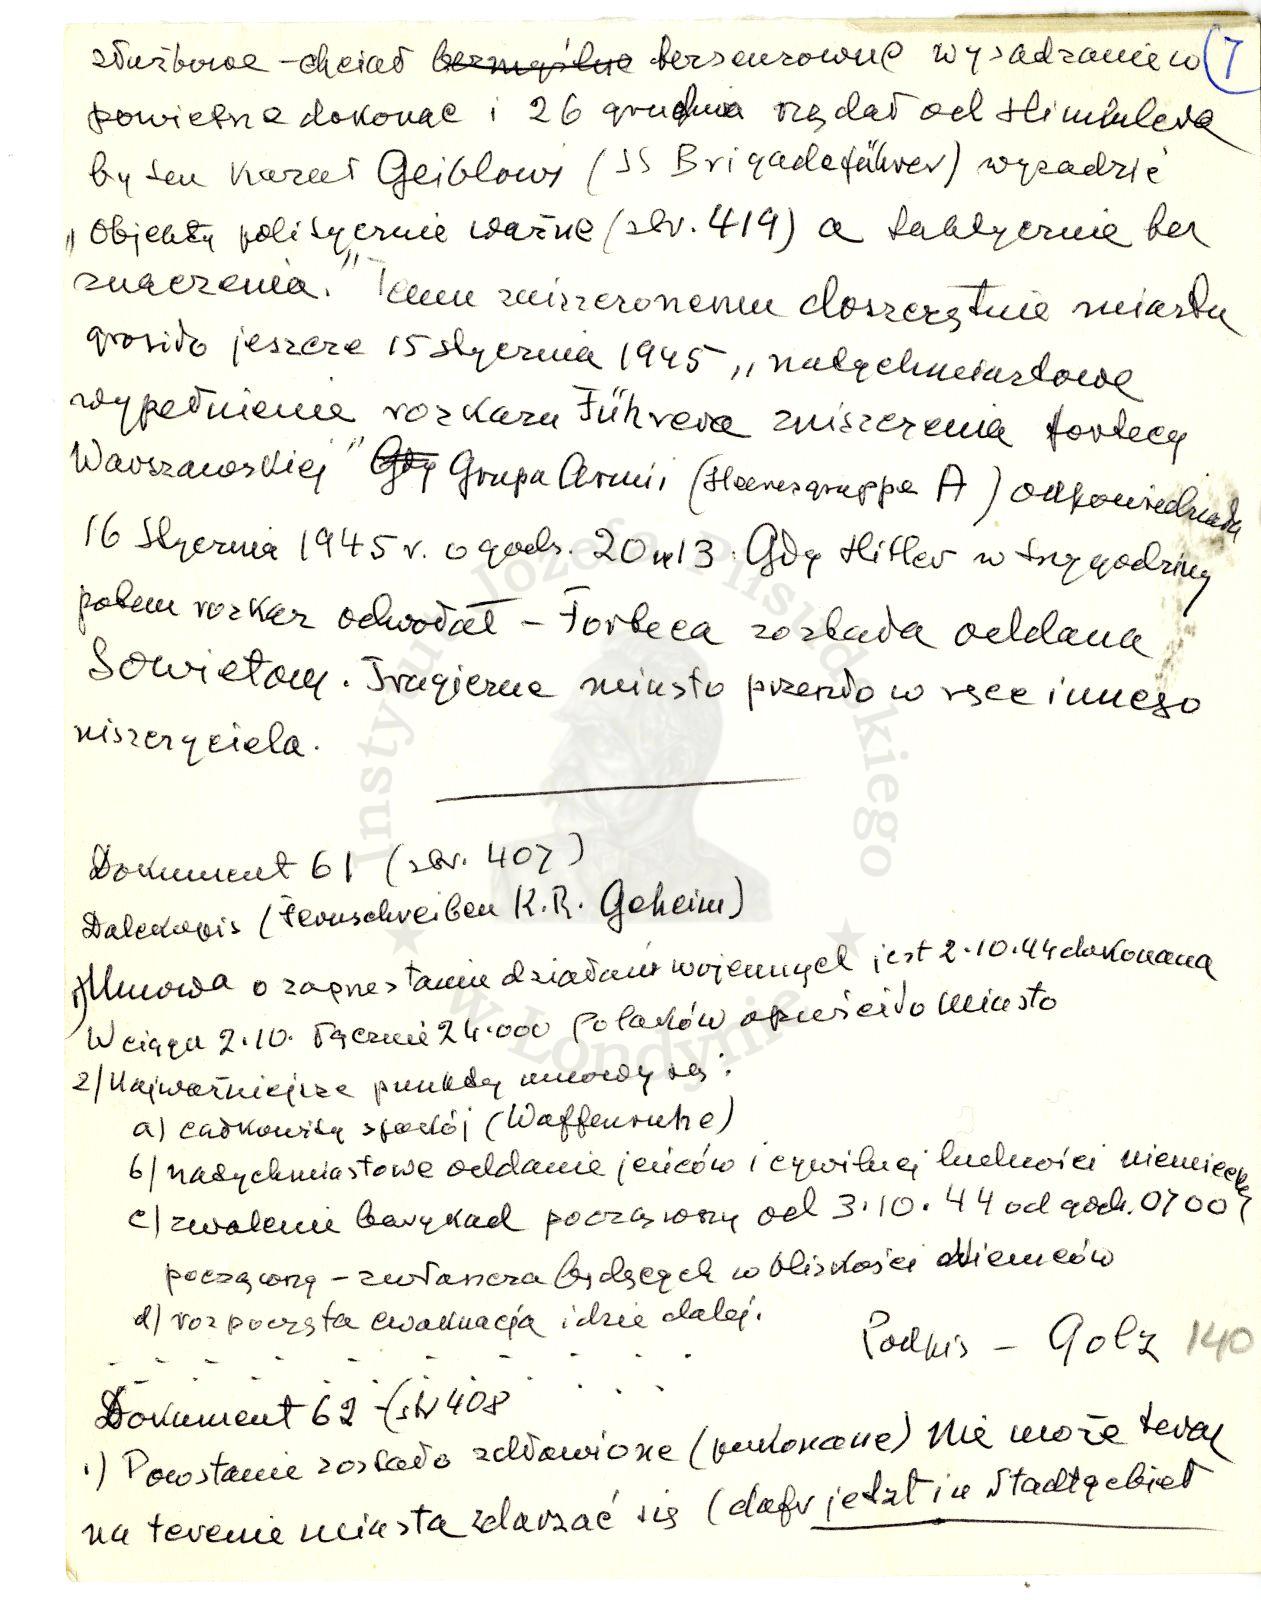 7
służbowe - chciał bezmyślne bezsensowne wysadzanie w
powietrze dokonać i 26 grudnia żądał od Himmlera
by ten kazał Geiblowi (SS Brigadeführer) wysadzić
„Objekty politycznie ważne (str. 419) a taktycznie bez
znaczenia." Temu zniszczonemu doszczętnie miastu
groziło jeszcze 15 stycznia 1945 „natychmiastowe
wypełnienie rozkazu Führera zniszczenia fortecy
Warszawskiej" Gdy Grupa Armii (Heeresgruppe A) odpowiedziała
16 stycznia 1945 r. o godz. 20 13. Gdy Hitler w trzy godziny
potem rozkaz odwołał - Forteca została oddana
Sowietom. Tragiczne miasto przeszło w ręce innego
niszczyciela.
Dokument 61 (str. 407)
Dalekopis (Fernschreiben K.R. Geheim)
1) Umowa o zaprzestanie działań wojennych jest 2.10.44 dokonana
W ciągu 2.10. łącznie 24.000 polaków opuściło miasto
2/ Najważniejsze punkty umowy są:
a) całkowity spokój (Waffenruhe)
b/ natychmiastowe oddanie jeńców i cywilnej ludności niemieckiej
c/ zwalenie barykad począwszy od 3.10.44 od godz. 0700
począwszy - zwłaszcza będących w bliskości Niemców
d/ rozpoczęta ewakuacja idzie dalej.
Podpis - Golz 140
Dokument 62 - (str 408
1) Powstanie zostało zdławione (pokonane) Nie może teraz
na terenie miasta zdarzać się (dafr jetzt in Stadtgebiet
Instytut Józefa Piłsudskiego
★ w Londynie ★